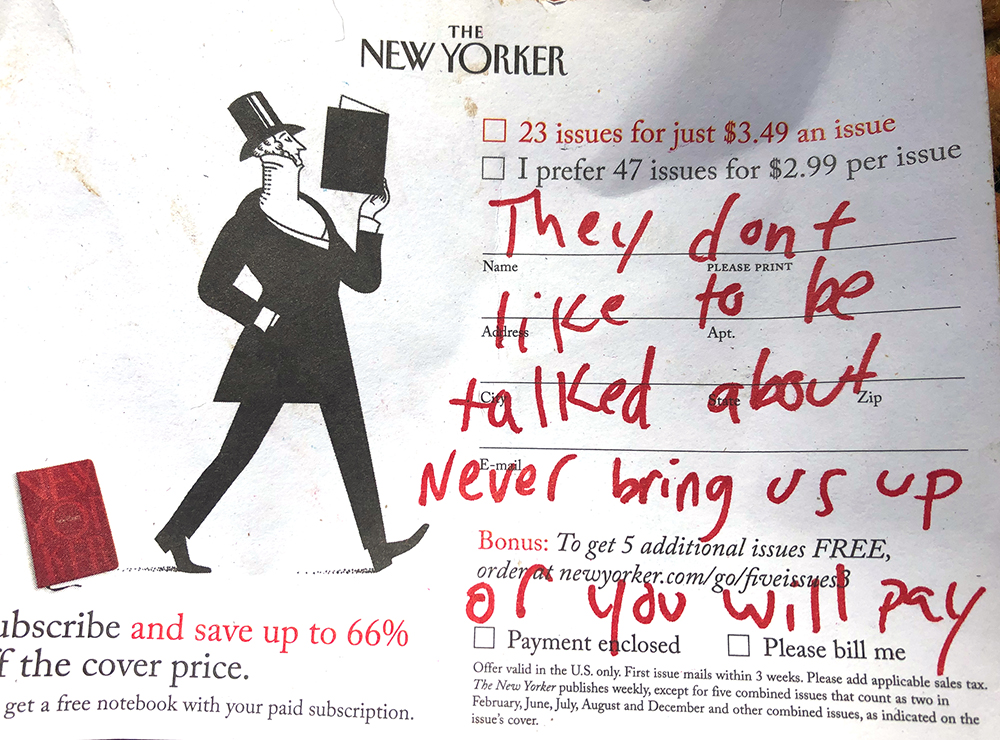 THE
NEW YORKER
23 issues for just $3.49 an issue
I prefer 47 issues for $2.99 per issue
They dont
Name PLEASE PRINT
like to be
Address Apt.
talked about
City State Zip
E-mail
Never bring us up
Bonus: To get 5 additional issues FREE,
order at newyorker.com/go/fiveissues3
or you will pay
Payment enclosed Please bill me
Offer valid in the U.S. only. First issue mails within 3 weeks. Please add applicable sales tax.
The New Yorker publishes weekly, except for five combined issues that count as two in
February, June, July, August and December and other combined issues, as indicated on the
issue's cover.
ubscribe and save up to 66%
f the cover price.
get a free notebook with your paid subscription.